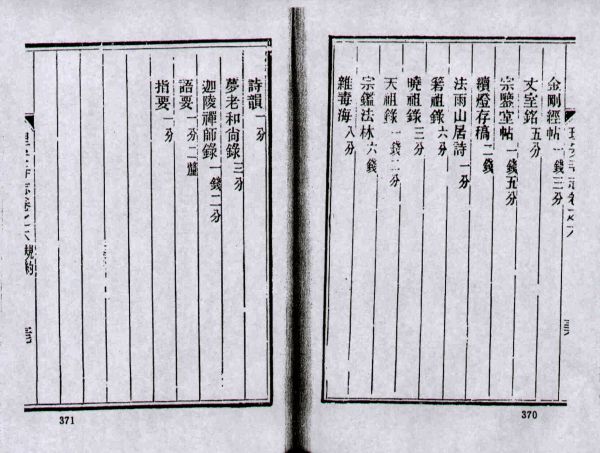 金剛經帖一錢三分
丈室銘五分
宗鑒堂帖一錢五分
續燈存稿二錢
法雨山居詩一分
箬祖錄六分
曉祖錄三分
天祖錄一錢二分
宗鑑法林六錢
雜毒海八分
370
詩韻一分
夢老和尙錄三分
迦陵禪師錄一錢二分
語要一分二釐
指要一分
規約
371